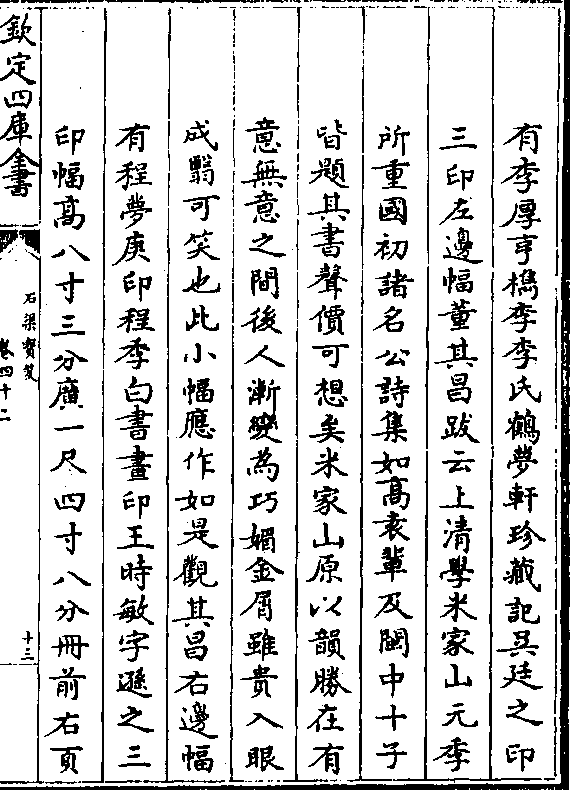 有李厚亨檇李李氏鶴夢軒珍藏記吳廷之印
三印左邊幅董其昌跋云上清學米家山元季
所重國初諸名公詩集如高袁輩及閩中十子
皆題其書聲價可想矣米家山原以韻勝在有
意無意之間後人漸變為巧媚金屑雖貴入眼
成翳可笑也此小幅應作如是觀其昌右邊幅
有程夢庚印程季白書畫印王時敏字遜之三
印幅高八寸三分廣一尺四寸八分冊前右頁
欽定四庫全書
石渠寶笈
卷四十二
十三